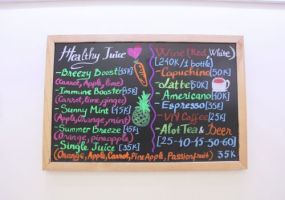 Healthy Juice
-Breezy Boost [35K]
(Carrot, Apple, lime)
-Immune Booster [35K]
(Carrot, lime, ginger)
-Sunny Mint [45K]
(Apple, Orange, mint)
-Summer Breeze [45K]
(Orange, pineapple)
-Single Juice [35K]
(Orange, Apple, Carrot, PineApple, Passionfruit) 35K
Wine (Red, White)
[240K/1 bottle]
-Capuchino [50K]
-Latte [50K]
-Americano [40K]
-Espresso [35K]
-VN Coffee [25K]
-Alot Tea & Beer
[25-40-15-50-60]